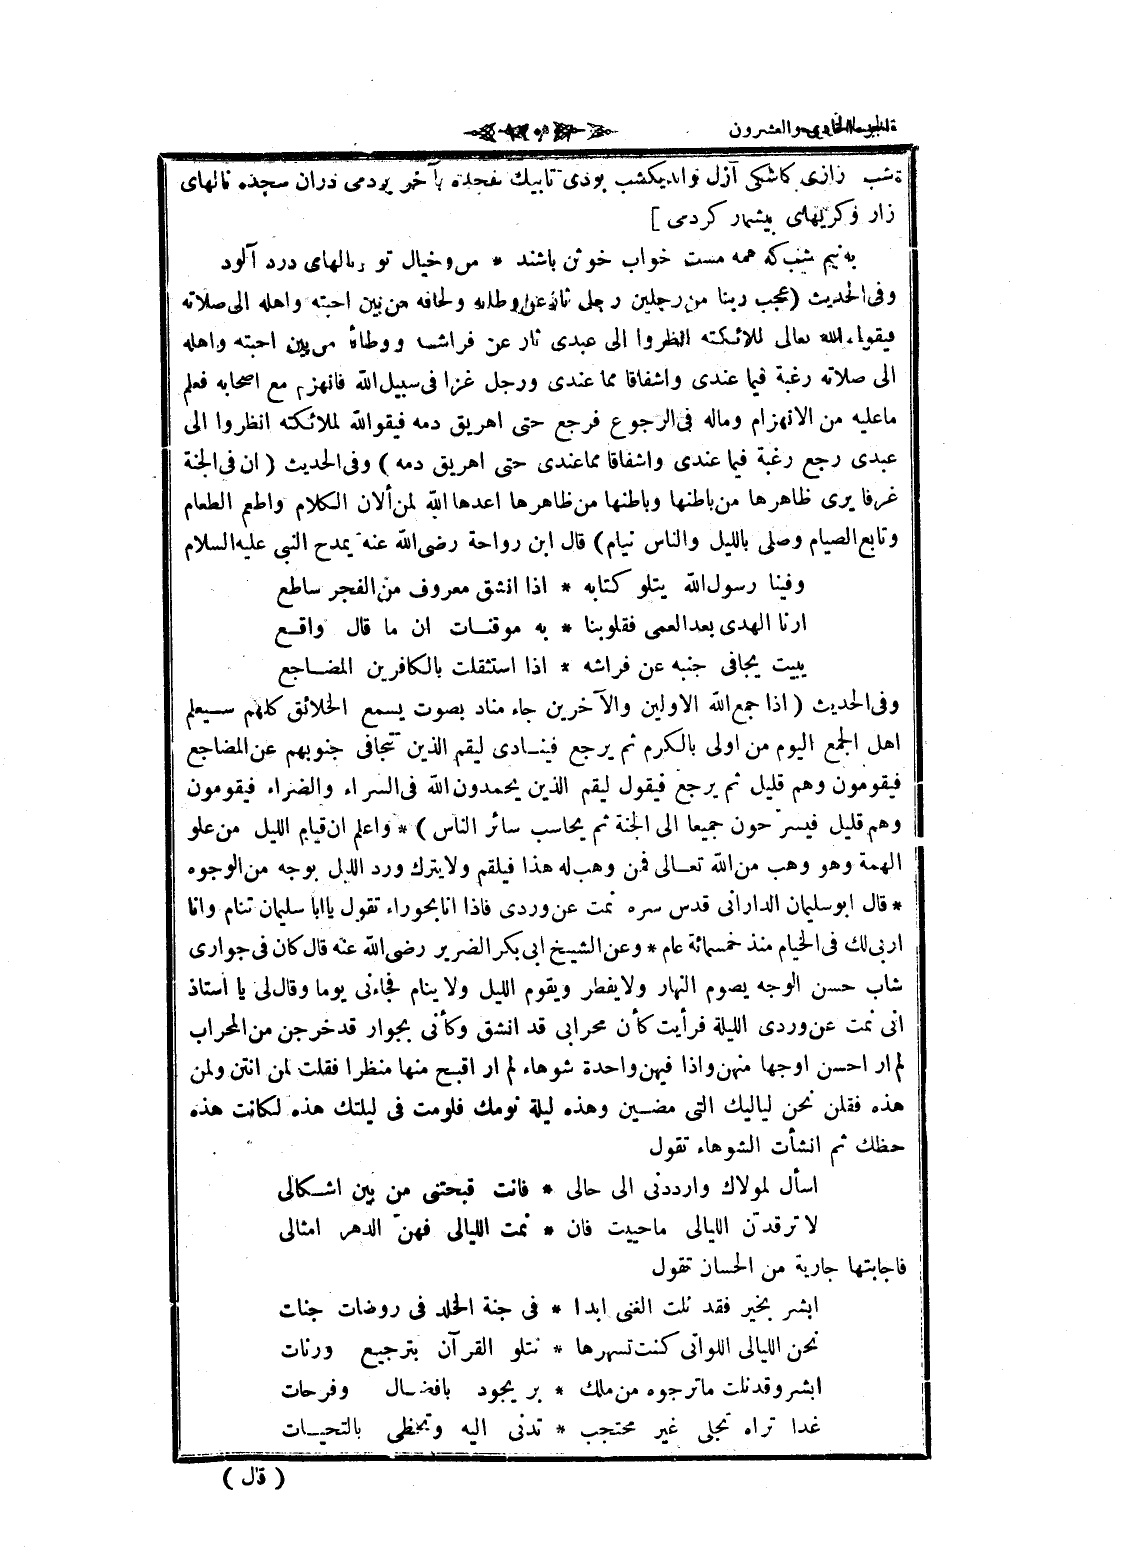 الجزء الحادى والعشرون
شب زارى كاشكى آزل تواند يكشب بودى تابيك سجده بآخر بردمى دران سجده نالهاى
زار وكريهاى بيشمار كردمى ]
به نيم شب كه همه مست خواب خوش باشند * من وخيال تو ونالهاى درد آلود
وفى الحديث ( عجب ربنا من رجلين رجل ثار عن وطائه ولحافه من بين احبته واهله الى صلاته
فيقول الله تعالى لملائكته انظروا الى عبدى ثار عن فراشه ووطائه من بين احبته واهله
الى صلاته رغبة فيما عندى واشفاقا مما عندى ورجل غزا فى سبيل الله فانهزم مع اصحابه فعلم
ماعليه من الانهزام وماله فى الرجوع فرجع حتى اهريق دمه فيقول الله لملائكته انظروا الى
عبدى رجع رغبة فيما عندى واشفاقا مماعندى حتى اهريق دمه ) وفى الحديث ( ان فى الجنة
غرفا يرى ظاهرها من باطنها وباطنها من ظاهرها اعدها الله لمن ألان الكلام واطعم الطعام
وتابع الصيام وصلى بالليل والناس نيام ) قال ابن رواحة رضى الله عنه يمدح النبي عليه السلام
وفينا رسول الله يتلو كتابه * اذا انشق معروف من الفجر ساطع
ارنا الهدى بعد العمى فقلوبنا * به موقنات ان ما قال واقع
يبيت يجافى جنبه عن فراشه * اذا استثقلت بالكافرين المضاجع
وفى الحديث ( اذا جمع الله الاولين والآخرين جاء مناد بصوت يسمع الخلائق كلهم سيعلم
اهل الجمع اليوم من اولى بالكرم ثم يرجع فينادى ليقم الذين تتجافى جنوبهم عن المضاجع
فيقومون وهم قليل ثم يرجع فيقول ليقم الذين يحمدون الله فى السراء والضراء فيقومون
وهم قليل فيسرّحون جميعا الى الجنة ثم يحاسب سائر الناس ) * واعلم ان قيام الليل من علو
الهمة وهو وهب من الله تعالى فمن وهب له هذا فيلقم ولايترك ورد الليل بوجه من الوجوه
* قال ابو سليمان الدارانى قدس سره نمت عن وردى فاذا انا بحوراء تقول ياابا سليمان تنام وانا
اربى لك فى الخيام منذ خمسمائة عام * وعن الشيخ ابى بكر الضرير رضى الله عنه قال كان فى جوارى
شاب حسن الوجه يصوم النهار ولايفطر ويقوم الليل ولا ينام فجاءنى يوما وقال لى يا استاذ
انى نمت عن وردى الليلة فرأيت كأن محرابى قد انشق وكأنى بجوار قد خرجن من المحراب
لم ار احسن اوجها منهن واذا فيهن واحدة شوهاء لم ار اقبح منها منظرا فقلت لمن انتن ولمن
هذه فقلن نحن لياليك التى مضين وهذه ليلة نومك فلومت فى ليلتك هذه لكانت هذه
حظك ثم انشأت الشوهاء تقول
اسأل لمولاك وارددنى الى حالى * فانت قبحتنى من بين اشكالى
لا ترقدنّ الليالى ماحييت فان * نمت الليالى فهنّ الدهر امثالى
فاجابتها جارية من الحسان تقول
ابشر بخير فقد نلت الغنى ابدا * فى جنة الخلد فى روضات جنات
نحن الليالى اللواتى كنت تسهرها * نتلو القرآن بترجيع ورنات
ابشر وقد نلت ماترجوه من ملك * بر يجود بافضال وفرحات
غدا تراه تجلى غير محتجب * تدنى اليه وتحظى بالتحيات
( قال )